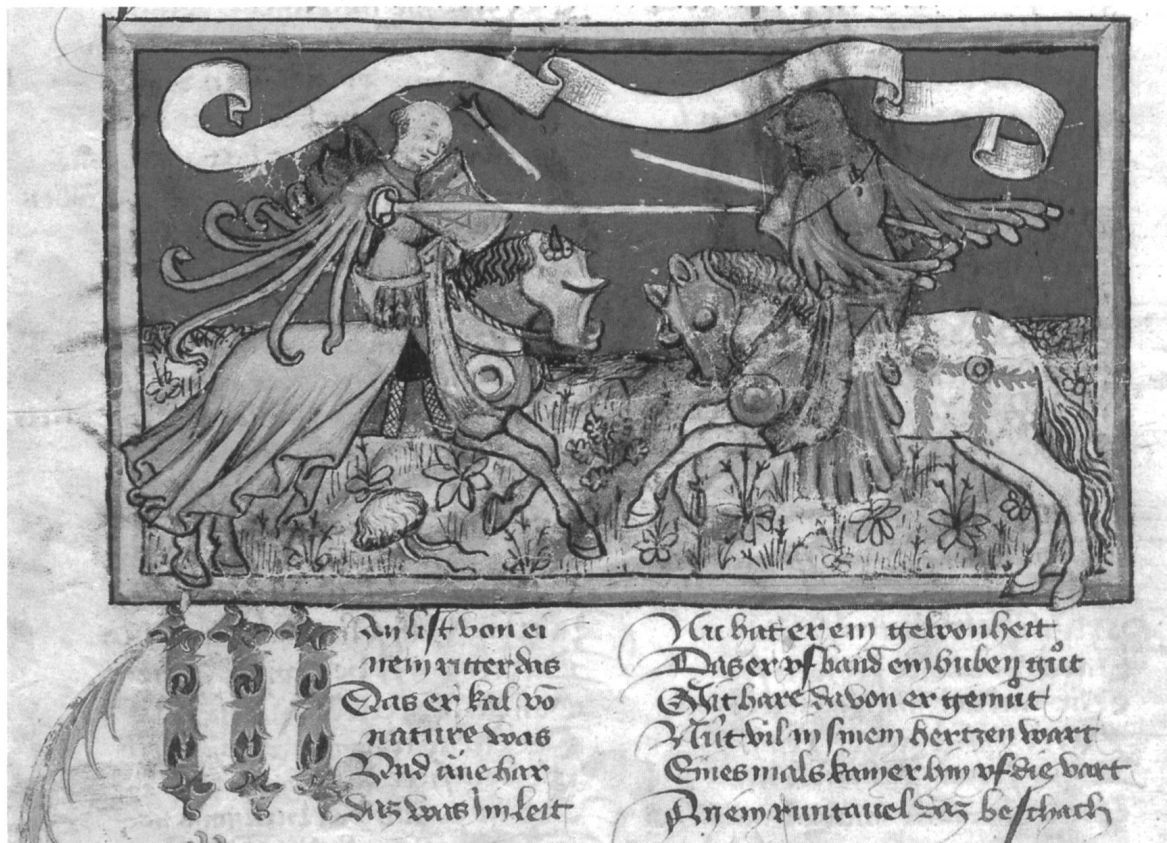 MAn list von ei
nem ritter das
Das er kal vō
nature was
Vnd ane har
daz was im leit
Nu hat er ein gewonheit
Das er vf band ein huben gůt
Mit hare da von er gemůt
Nüt vil in sinem hertzen wart
Eines mals kam er hin vf die vart
In ein runtauel daz beschach